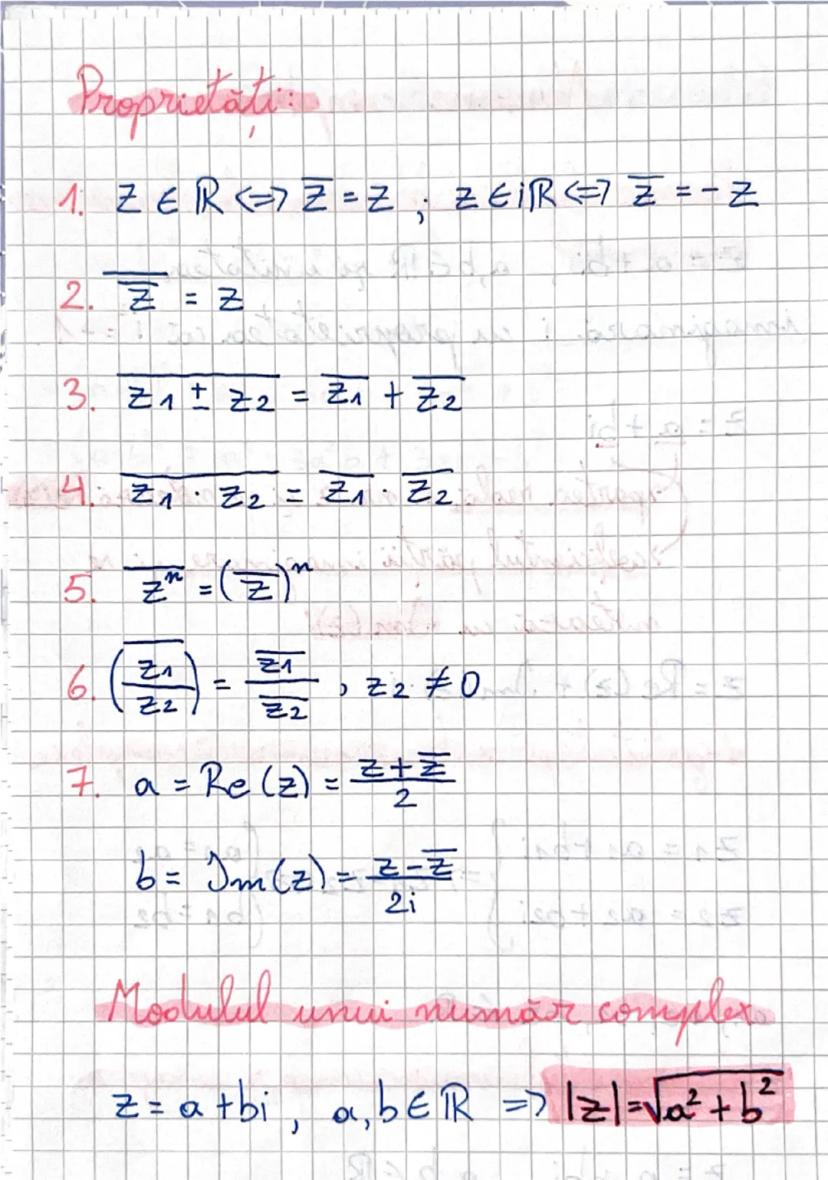 Proprietăți:
1. z ∈ ℝ <=> z̅ = z ; z ∈ iℝ <=> z̅ = - z
2. \overline{\overline{z}} = z
3. \overline{z1 ± z2} = \overline{z1} + \overline{z2}
4. \overline{z1 · z2} = \overline{z1} · \overline{z2}
5. \overline{z^n} = (\overline{z})^n
6. \overline{(z1/z2)} = \overline{z1}/\overline{z2} , z2 ≠ 0
7. a = Re(z) = (z + \overline{z})/2
b = Im(z) = (z - \overline{z})/2i
Modulul unui număr complex
z = a + bi , a, b ∈ ℝ => |z| = √(a² + b²)